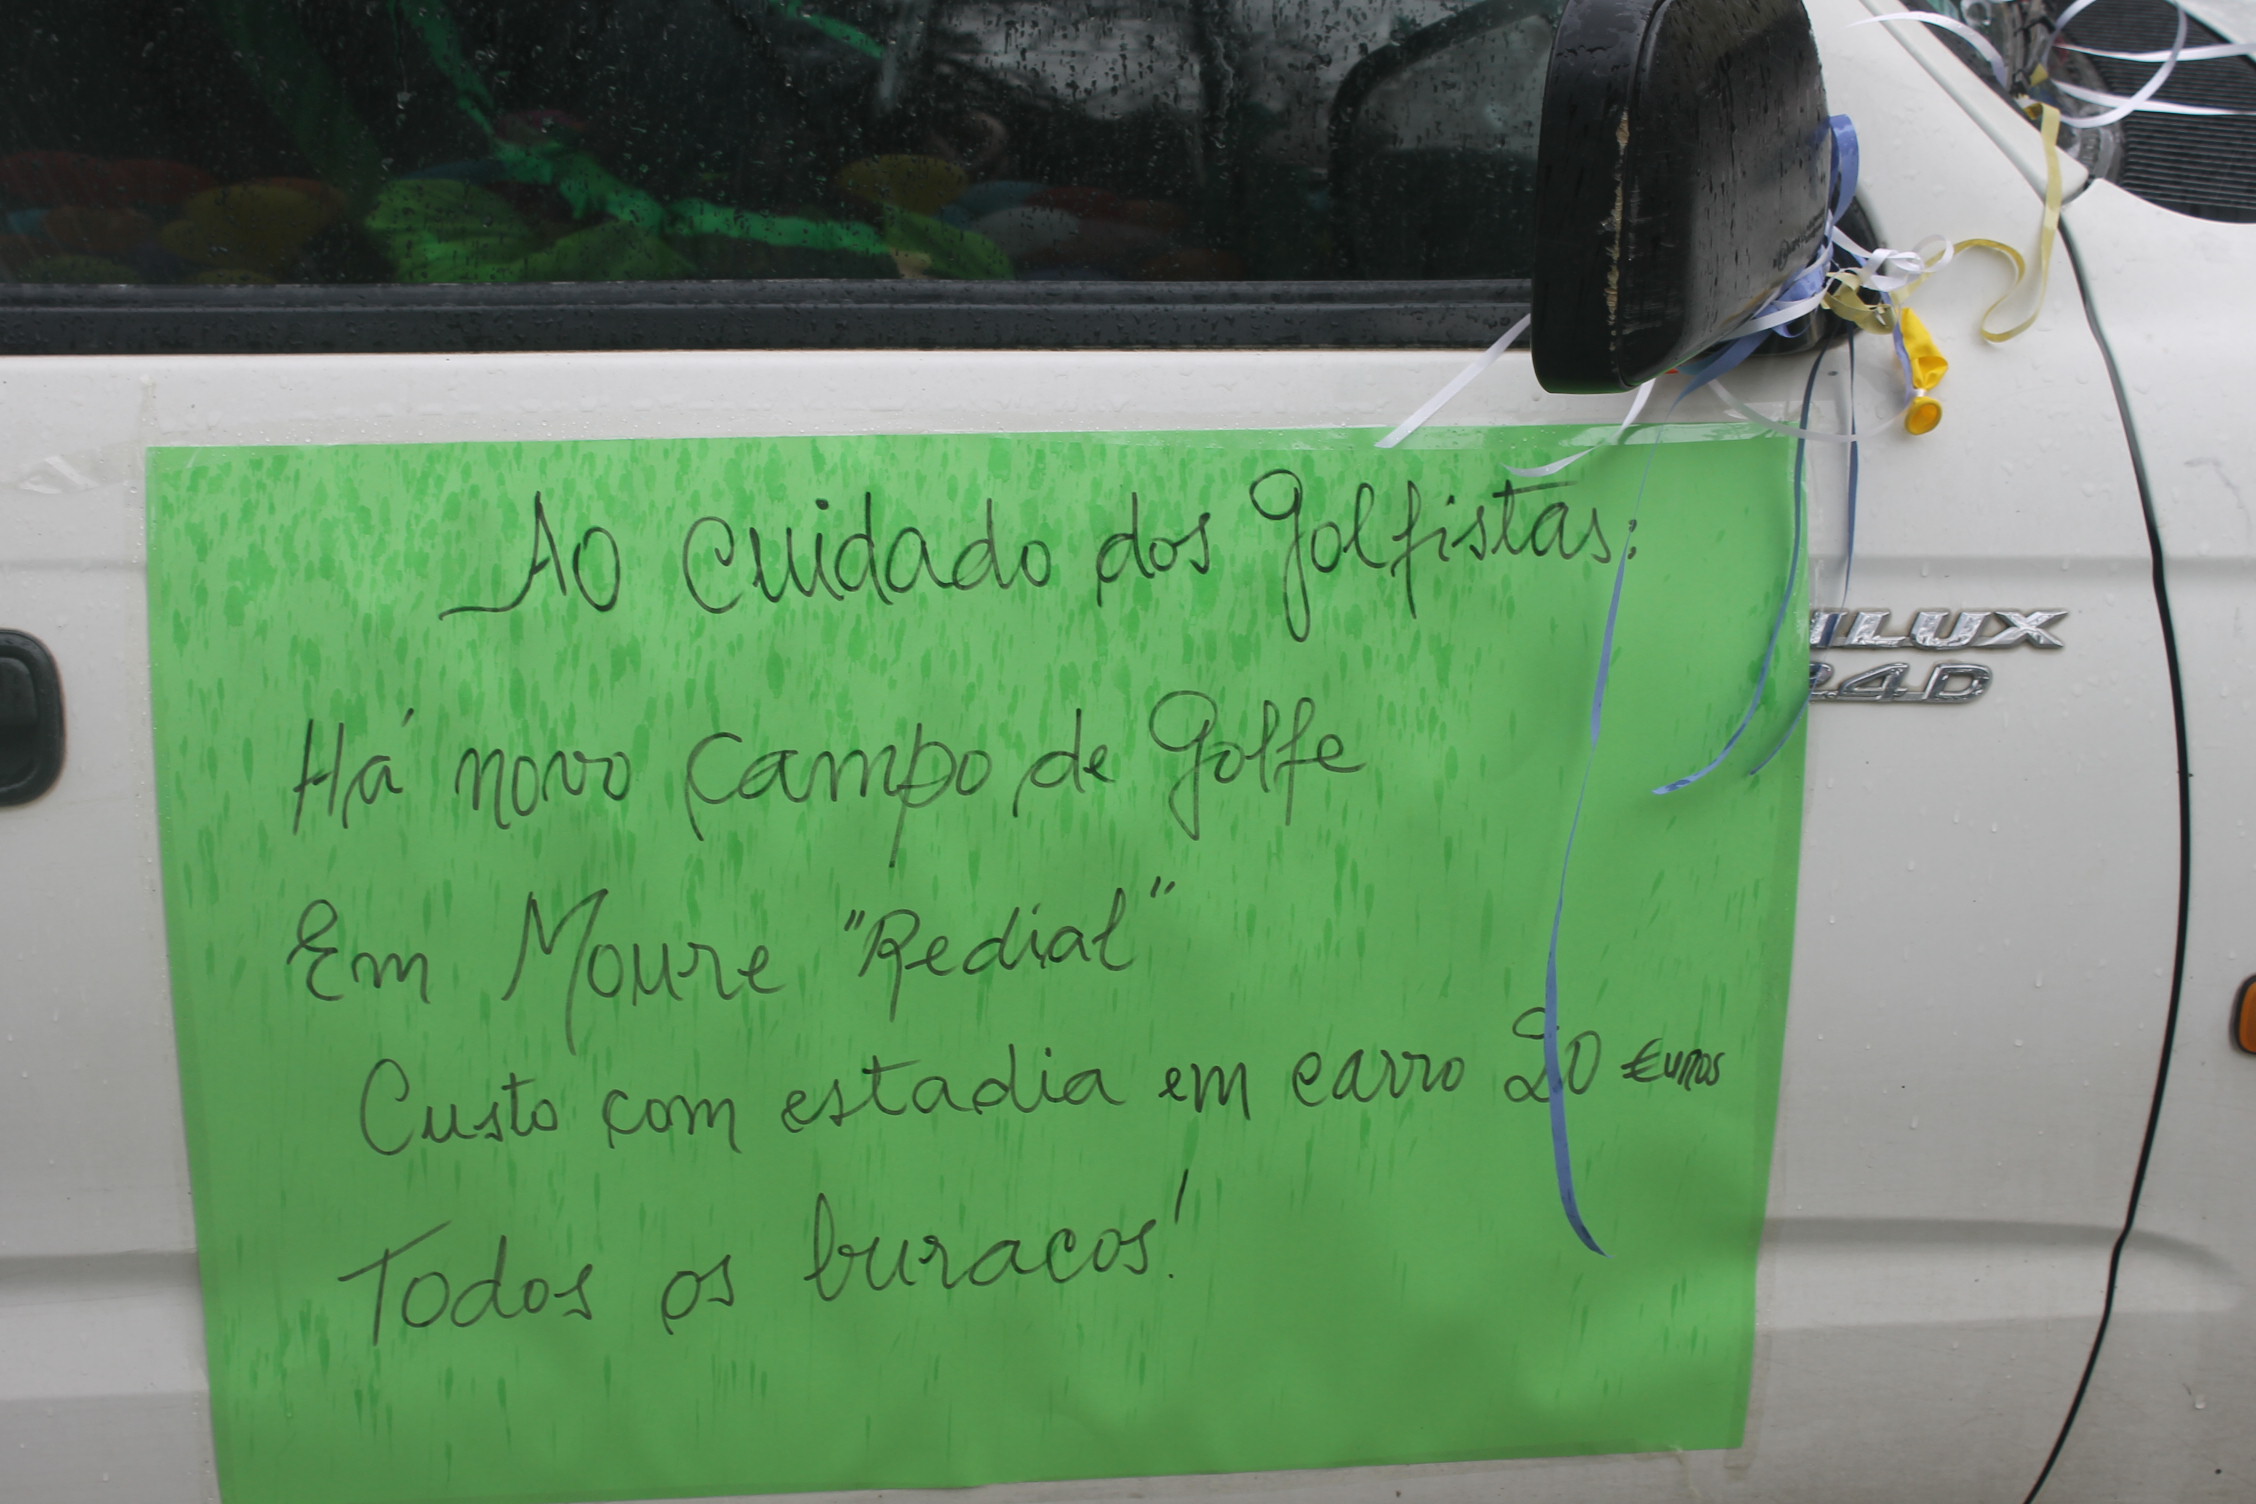 Ao cuidado dos Golfistas:
Há novo campo de Golfe
Em Moure "Redial"
Custo com estadia em carro 20 €uros
Todos os buracos!
ILUX
2.4D